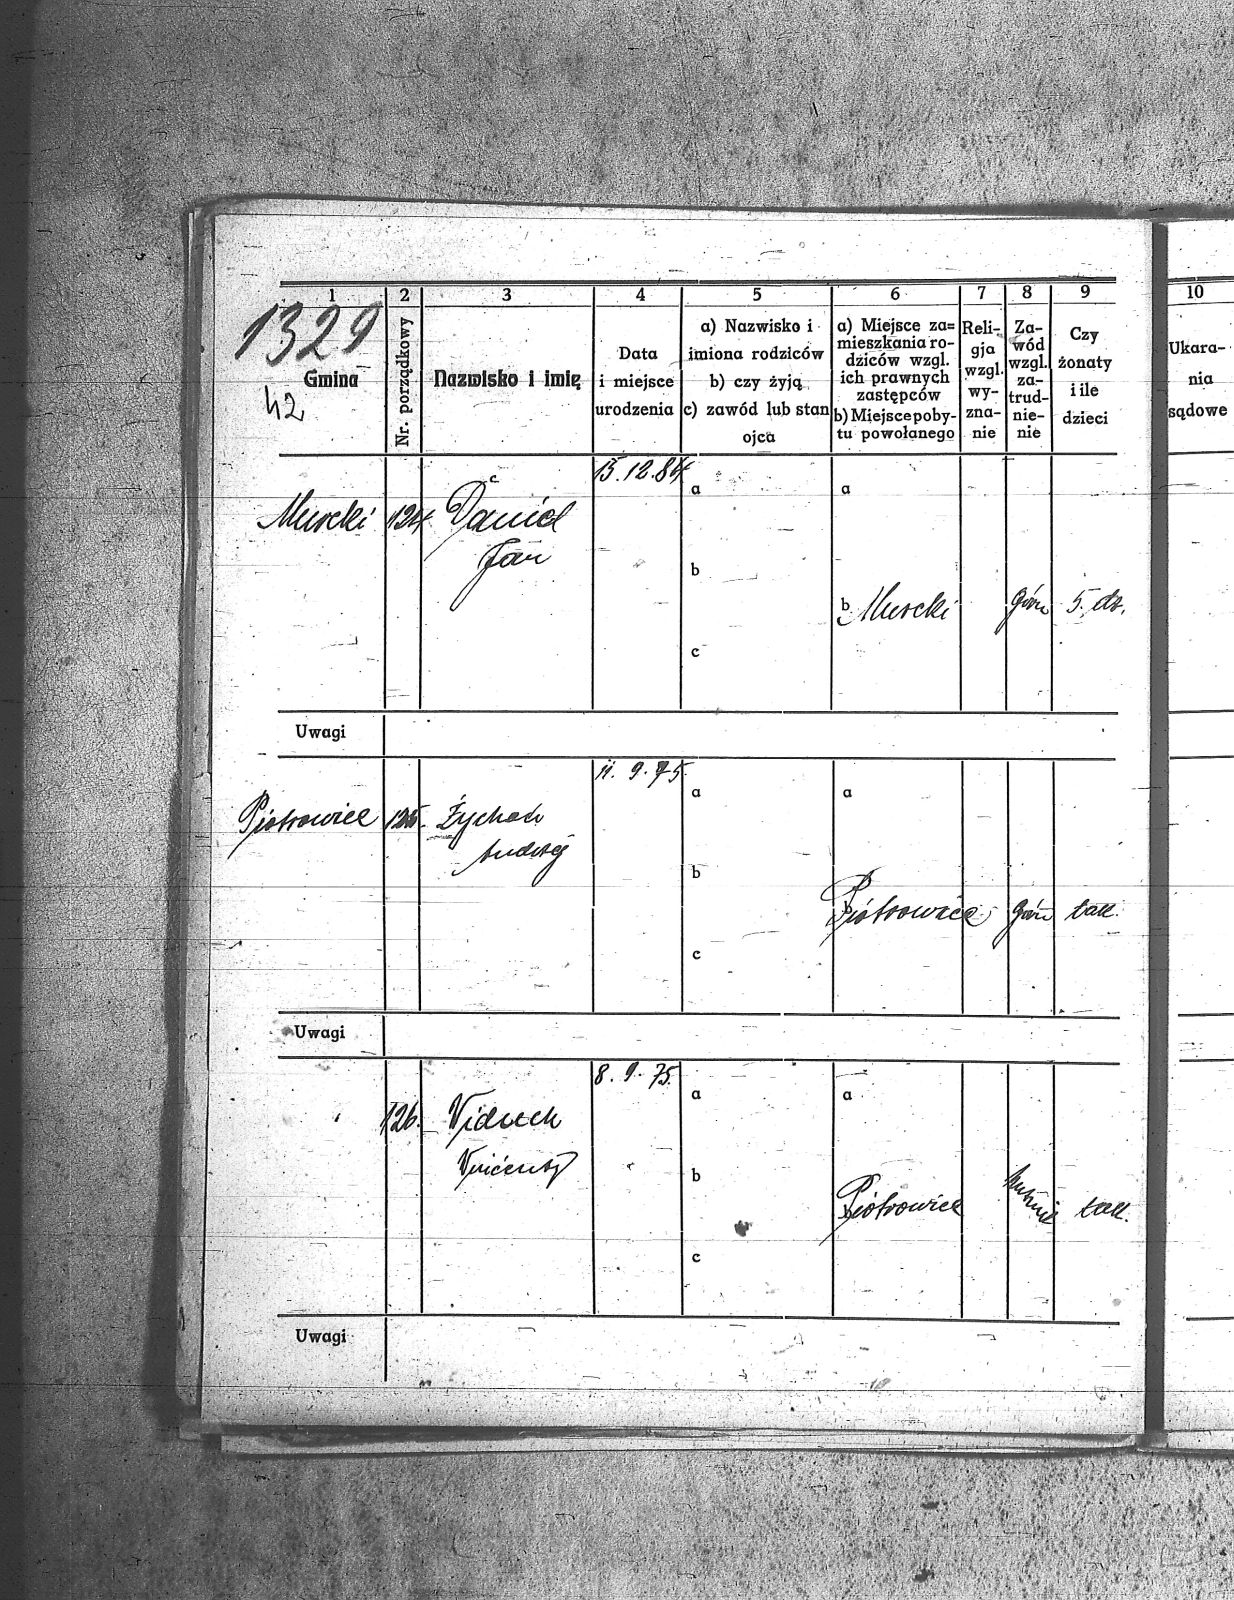 1 2 3 4 5 6 7 8 9 10
1329
42
Gmina
Nr. porządkowy
Nazwisko i imię
Data
i miejsce
urodzenia
a) Nazwisko i
imiona rodziców
b) czy żyją
c) zawód lub stan
ojca
a) Miejsce za=
mieszkania ro-
dziców wzgl.
ich prawnych
zastępców
b) Miejsce poby-
tu powołanego
Reli-
gja
wzgl.
wy-
zna-
nie
Za-
wód
wzgl.
za-
trud-
nie-
nie
Czy
żonaty
i ile
dzieci
Ukara-
nia
sądowe
15.12.84
a a
Murcki 124. Daniel
Jan
b
b Murcki górn 5. dz.
c
Uwagi
11. 9. 75.
a a
Piotrowice 125. Żychoń
Andrzej
b
b Piotrowice górn tak.
c
Uwagi
8. 9. 75.
a a
126.
b
b Piotrowice tak.
c
Uwagi